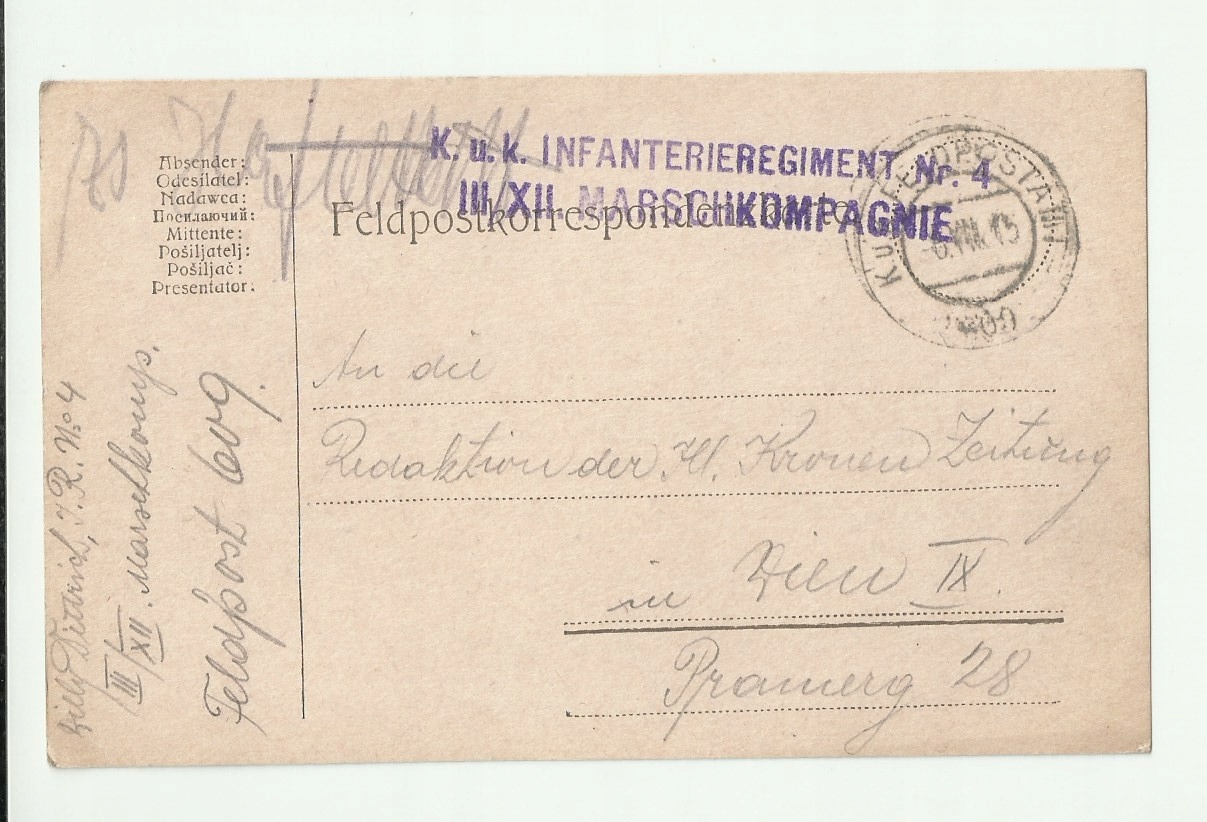 K. u. k. INFANTERIEREGIMENT Nr. 4
III/XII. MARSCHKOMPAGNIE
Feldpostkorrespondenzkarte
Absender:
Odesílatel:
Nadawca:
Посилаючий:
Mittente:
Pošiljatelj:
Pošiljač:
Presentator:
K.u.K. FELDPOSTAMT
6.VIII.15
An die
Redaktion der Ill. Kronen Zeitung
in Wien IX.
Pramerg 28
Dittrich, I. R. No 4
III/XII. Marschkomp.
Feldpost 609.